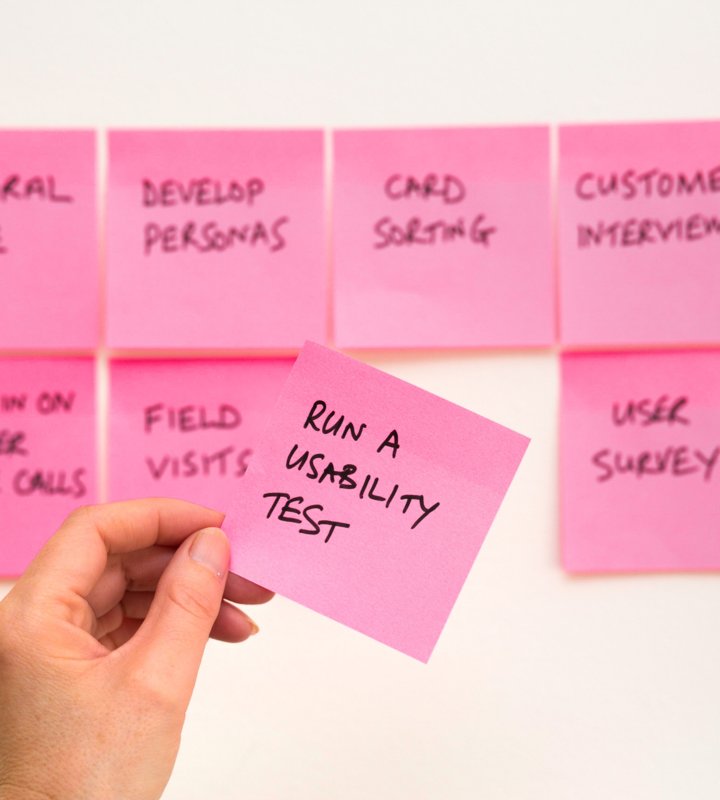 DEVELOP
PERSONAS
CARD
SORTING
CUSTOME
INTERVIEW
IN ON
ER
CALLS
FIELD
VISITS
RUN A
USABILITY
TEST
USER
SURVEY